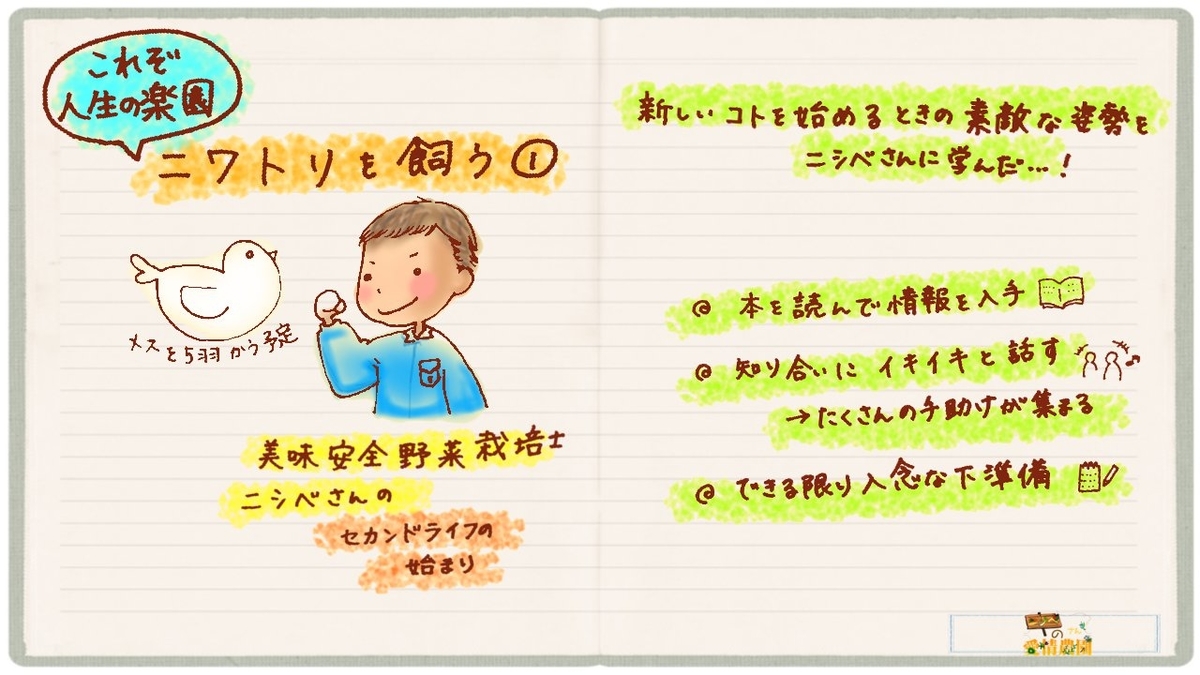 これぞ
人生の楽園
ニワトリを飼う①
メスを5羽かう予定
美味安全野菜栽培士
ニシベさんの
セカンドライフの
始まり
新しいコトを始めるときの素敵な姿勢を
ニシベさんに学んだ…!
@ 本を読んで情報を入手
@ 知り合いにイキイキと話す
→たくさんの手助けが集まる
@ できる限り入念な下準備
の
愛情農園